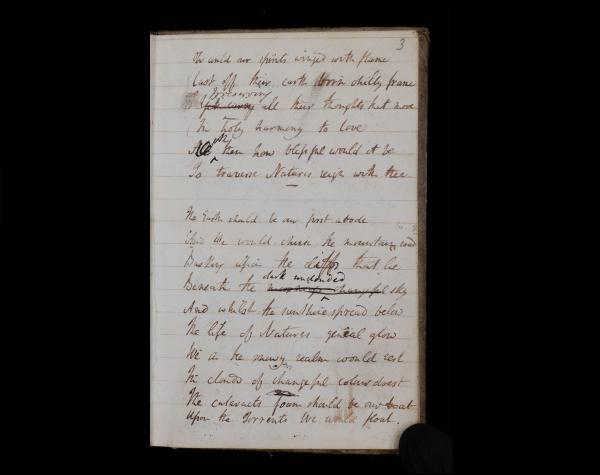 3
Or could our spirits winged with flame
Cast off their earth born chilly frame
Preserving all their thoughts but move
In holy harmony to love
Ah then how blissful would it be
To traverse Natures reign with thee
The Earth should be our first abode
And We would climb the mountain road
Basking upon the cliffs that lie
Beneath the dark unclouded changeful sky
And whilst the sunshine spread below
The life of Natures genial glow
We in the snowy realm would rest
In clouds of changeful colours drest
The cataracts foam should be our boat
Upon the Torrents We would float.